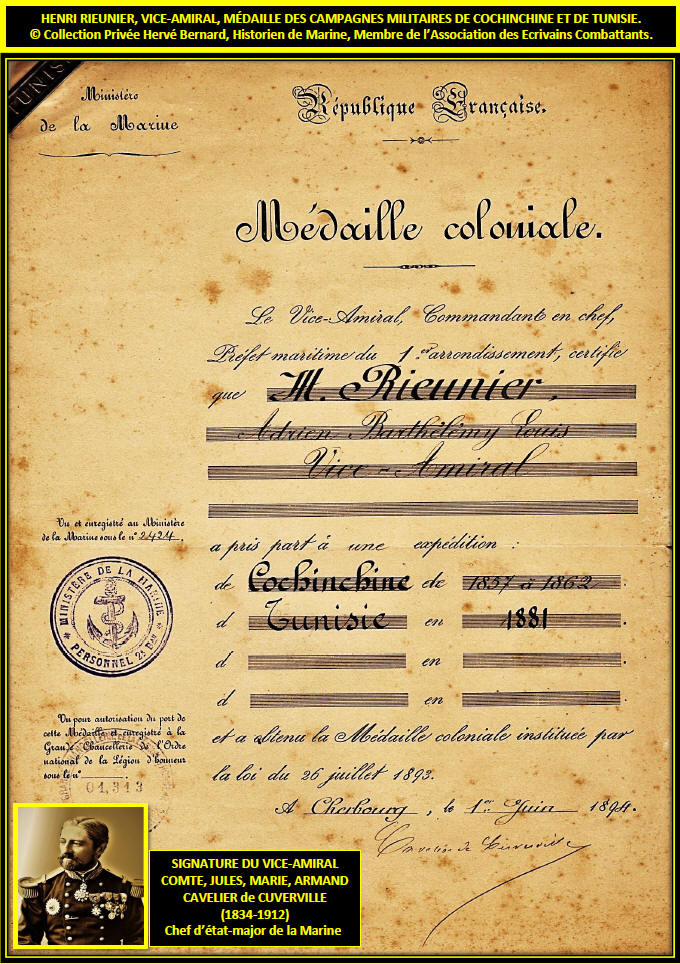 HENRI RIEUNIER, VICE-AMIRAL, MÉDAILLE DES CAMPAGNES MILITAIRES DE COCHINCHINE ET DE TUNISIE.
© Collection Privée Hervé Bernard, Historien de Marine, Membre de l'Association des Ecrivains Combattants.
TUNIS
Ministère
de la Marine
République Française.
Médaille coloniale.
Le Vice-Amiral, Commandant en chef,
Préfet maritime du 1.er arrondissement, certifie
que M. Rieunier,
Adrien Barthélémy Louis
Vice-Amiral
Vu et enregistré au Ministère
de la Marine sous le n° 2424.
a pris part à une expédition :
de Cochinchine de 1857 à 1862.
d Tunisie en 1881.
d en .
d en .
MINISTÈRE DE LA MARINE
PERSONNEL 2e Bau
Vu pour autorisation du port de
cette Médaille et enregistré à la
Grande Chancellerie de l'Ordre
national de la Légion d'honneur
sous le n° .
01,313
et a obtenu la Médaille coloniale instituée par
la loi du 26 juillet 1893.
A Cherbourg, le 1er Juin 1894.
Cavelier de Cuverville
SIGNATURE DU VICE-AMIRAL
COMTE, JULES, MARIE, ARMAND
CAVELIER de CUVERVILLE
(1834-1912)
Chef d'état-major de la Marine